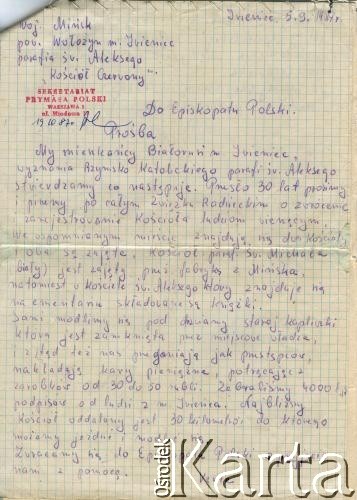 Iwieniec, 5.9.1987r
Woj. Mińsk
pow. Wołożyn m. Iwieniec
parafia św. Aleksego
"Kościół Czerwony"
SEKRETARIAT
PRYMASA POLSKI
WARSZAWA
ul. Miodowa
19 87r
Do Episkopatu Polski.
Prośba
My mieszkańcy Białorusi m. Iwieniec,
wyznania Rzymsko Katolickiego parafi św. Aleksego
stwierdzamy co następuje. 30 lat prosimy
i piszemy po całym Związku Radzieckim o zwrócenie
i zarejestrowanie Kościoła ludziom wierzącym
we wspomnianym mieście znajdują się dwa Kościoły
oba są zajęte. Kościół paraf. św. Michała
(biały) jest zajęty przez fabrykę z Mińska.
natomiast w kościele św. Aleksego który znajduje się
na cmentarzu składowane są książki.
Sami modlimy się pod drzwiami starej kapliczki
która jest zamknięta przez miejscowe władze,
i z tąd też nas przeganiają jak przestępców,
nakładają kary pieniężne potrącające z
zarobków od 30 do 50 rubli. Zebraliśmy 4000
podpisów od ludzi z m. Iwienca. Najbliższy
Kościół oddalony jest 30 kilometrów do którego
możemy jeździć i modlić się.
Zwracamy się do Episkopatu Polski
nam z pomocą.
Ośrodek
Karta